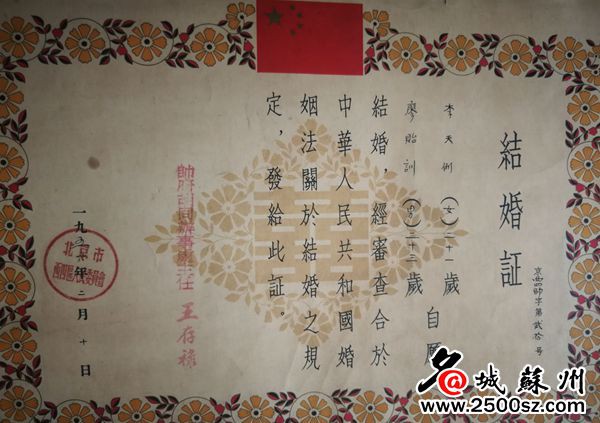 結婚証
京西四帥字第貳拾号
李天俐（女）二十一歲
廖貽訓（男）二十三歲
自願
結婚，經審查合於
中華人民共和國婚
姻法關於結婚之規
定，發給此証。
主任 王存祿
北京市
西四區人民委員會
一九五六年二月十日
名@城蘇州
www.2500sz.com